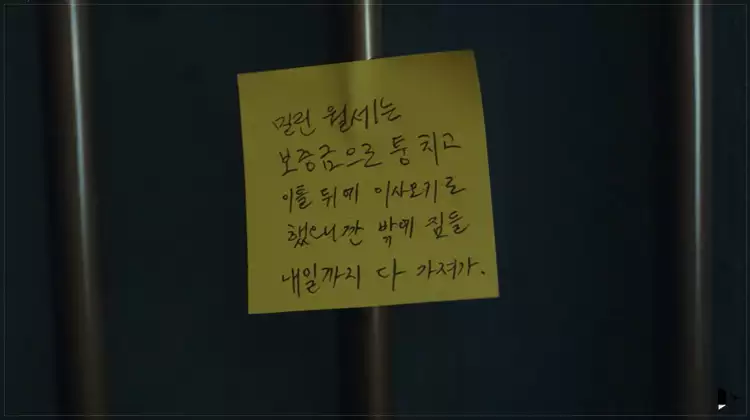 밀린 월세는
보증금으로 퉁 치고
이틀 뒤에 이사오기로
했으니깐 밖에 짐들
내일까지 다 가져가.